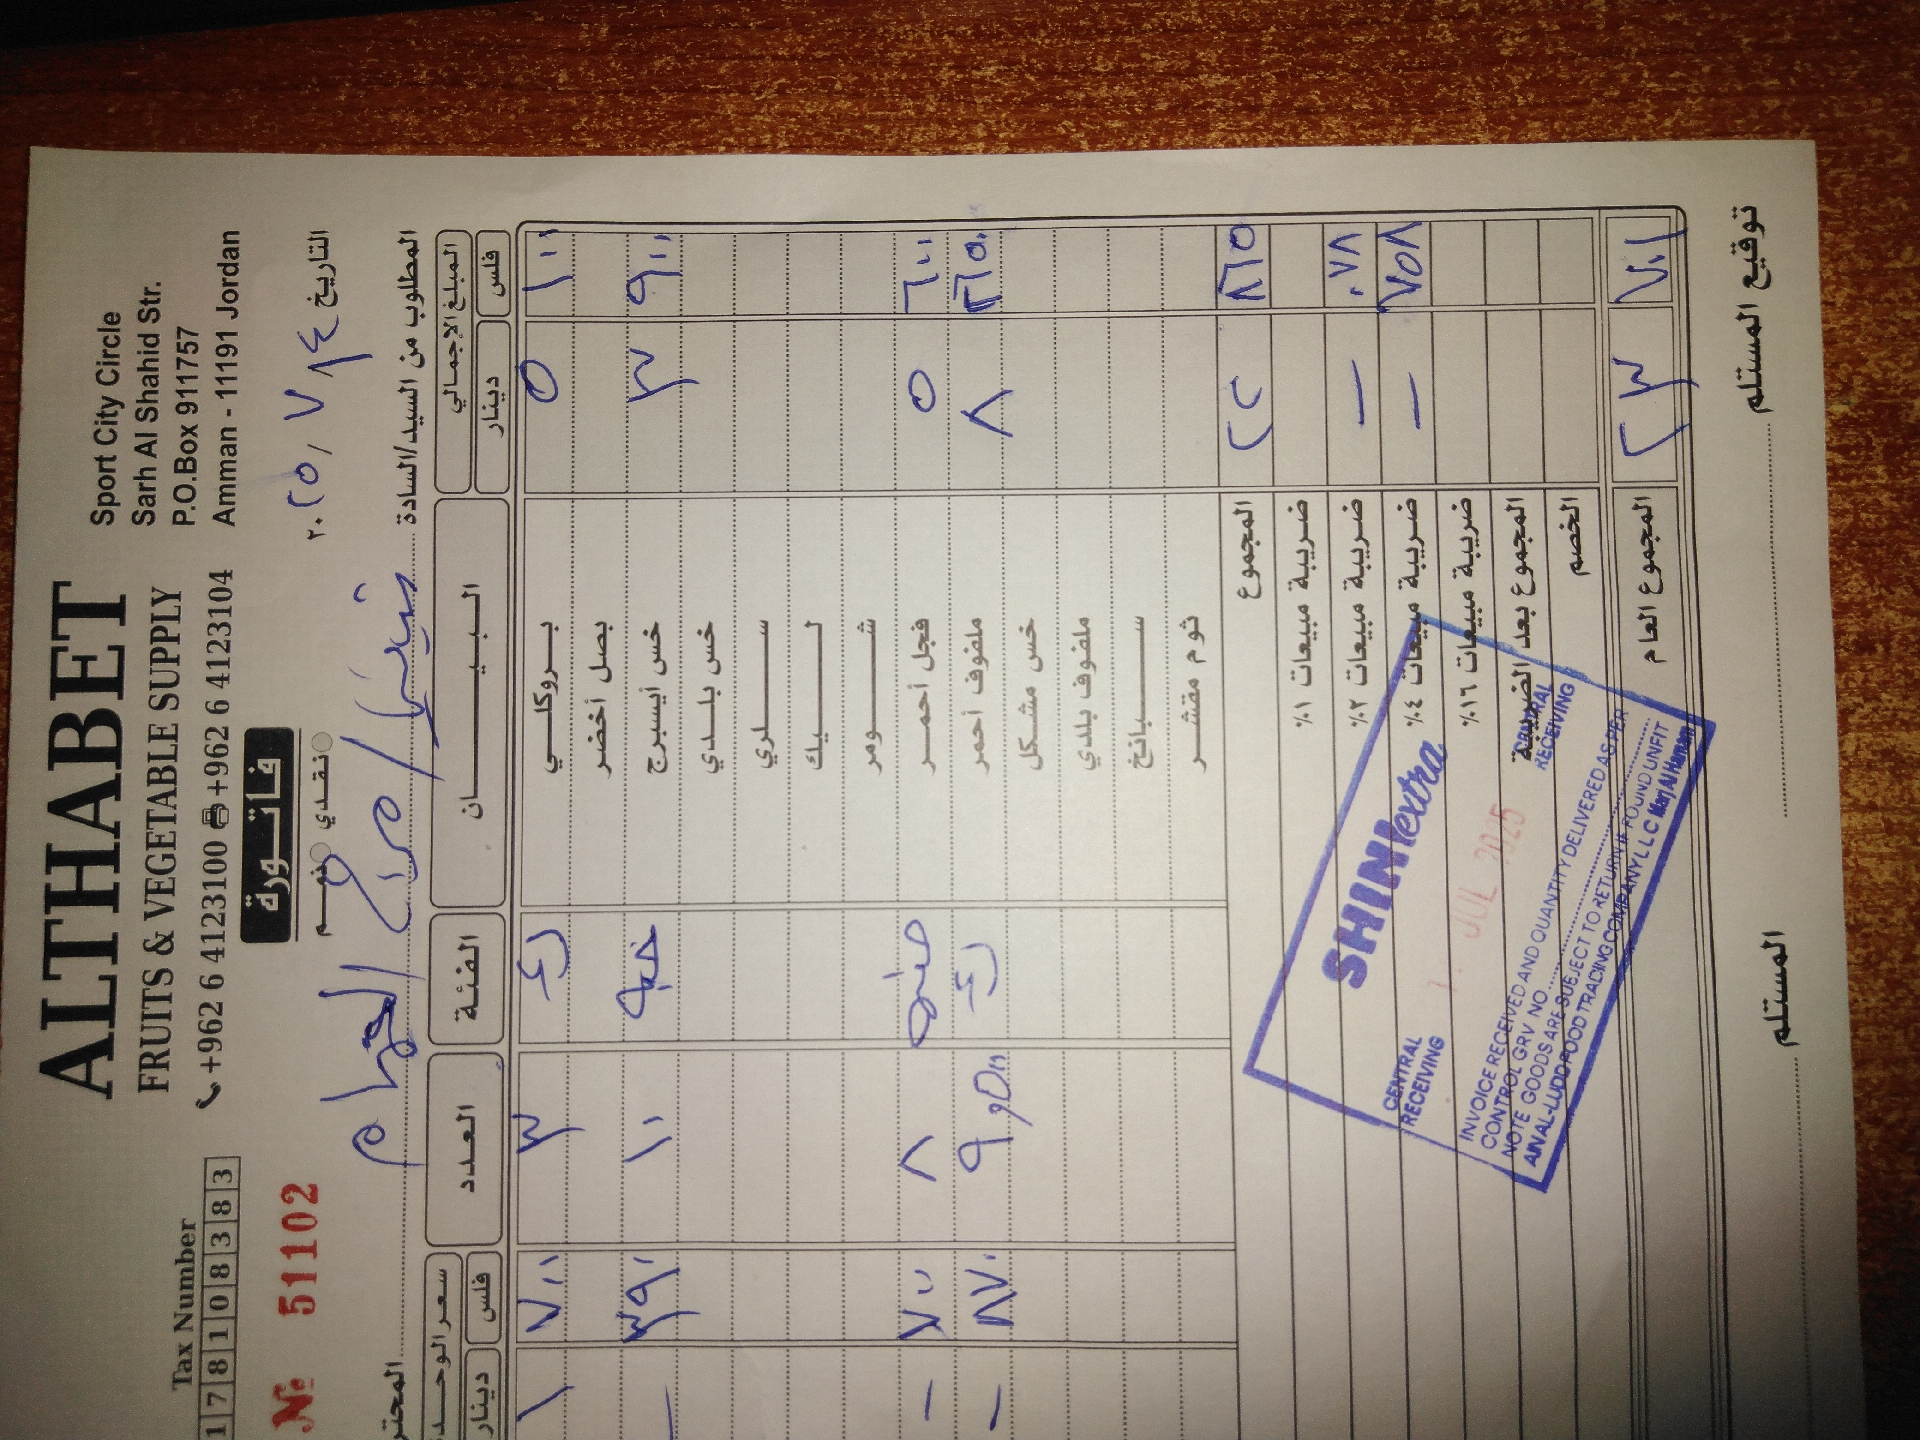 ALTHABET
FRUITS & VEGETABLE SUPPLY
+962 6 4123100 +962 6 4123104
Sport City Circle
Sarh Al Shahid Str.
P.O.Box 911757
Amman - 11191 Jordan
Tax Number
1 7 8 1 0 8 3 8 3
فاتورة
ذمم نقدي
№ 51102
التاريخ ٢٠٢٥/٧/٢٤
المطلوب من السيد/السادة
المبلغ الإجمالي البيان الفئة العدد سعر الوحدة
فلس دينار فلس دينار
١٠٠ ٥ بروكلي ٣ ٧٠٠ ١
بصل أخضر
٩٠٠ ٣ خس أيسبرج ١٠ ٣٩٠ -
خس بلدي
سلري
ليك
شومر
٦٠٠ ٥ فجل أحمر ٨ ٧٠٠ -
٢٦٥ ٨ ملفوف أحمر ٩,٥٠٠ ٨٧٠ -
خس مشكل
ملفوف بلدي
سبانخ
ثوم مقشر
٨٦٥ ٢٢ المجموع
ضريبة مبيعات ١%
٠٧٨ - ضريبة مبيعات ٢%
٧٥٨ - ضريبة مبيعات ٤%
ضريبة مبيعات ١٦%
المجموع بعد الضريبة
الخصم
٧٠١ ٢٣ المجموع العام
SHINI extra
CENTRAL RECEIVING
CENTRAL RECEIVING
JUL 2025
INVOICE RECEIVED AND QUANTITY DELIVERED AS PER
CONTROL GRV NO
NOTE GOODS ARE SUBJECT TO RETURN IF FOUND UNFIT
AINAL-LUDD FOOD TRADING COMPANY L L C Marj Al Hamam
توقيع المستلم
المستلم